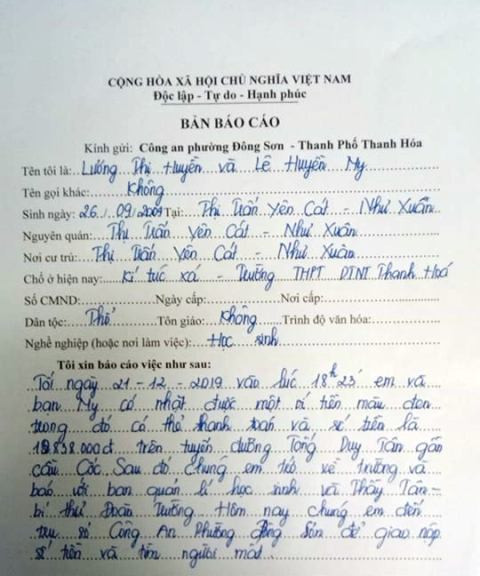 CỘNG HÒA XÃ HỘI CHỦ NGHĨA VIỆT NAM
Độc lập - Tự do - Hạnh phúc
BẢN BÁO CÁO
Kính gửi: Công an phường Đông Sơn - Thanh Phố Thanh Hóa
Tên tôi là: Lương Thị Huyền và Lê Huyền My
Tên gọi khác: Không
Sinh ngày: 26/09/2004 Tại: Thị Trấn Yên Cát - Như Xuân
Nguyên quán: Thị Trấn Yên Cát - Như Xuân
Nơi cư trú: Thị Trấn Yên Cát - Như Xuân
Chỗ ở hiện nay: Kí túc xá - Trường THPT DTNT Thanh Hoá
Số CMND: Ngày cấp: Nơi cấp:
Dân tộc: Thổ Tôn giáo: Không Trình độ văn hóa:
Nghề nghiệp (hoặc nơi làm việc): Học sinh
Tôi xin báo cáo việc như sau:
Tối ngày 21-12-2019 vào lúc 18h23' em và
bạn My có nhặt được một ví tiền màu đen
trong đó có thẻ thanh toán và số tiền là
.838.000đ trên tuyến đường Tống Duy Tân gần
cầu Cốc. Sau đó chúng em trở về trường và
báo với ban quản lí học sinh và Thầy Tân -
bí thư Đoàn Trường. Hôm nay chúng em đến
trụ sở Công An Phường Đông Sơn để giao nộp
số tiền và tìm người mất.